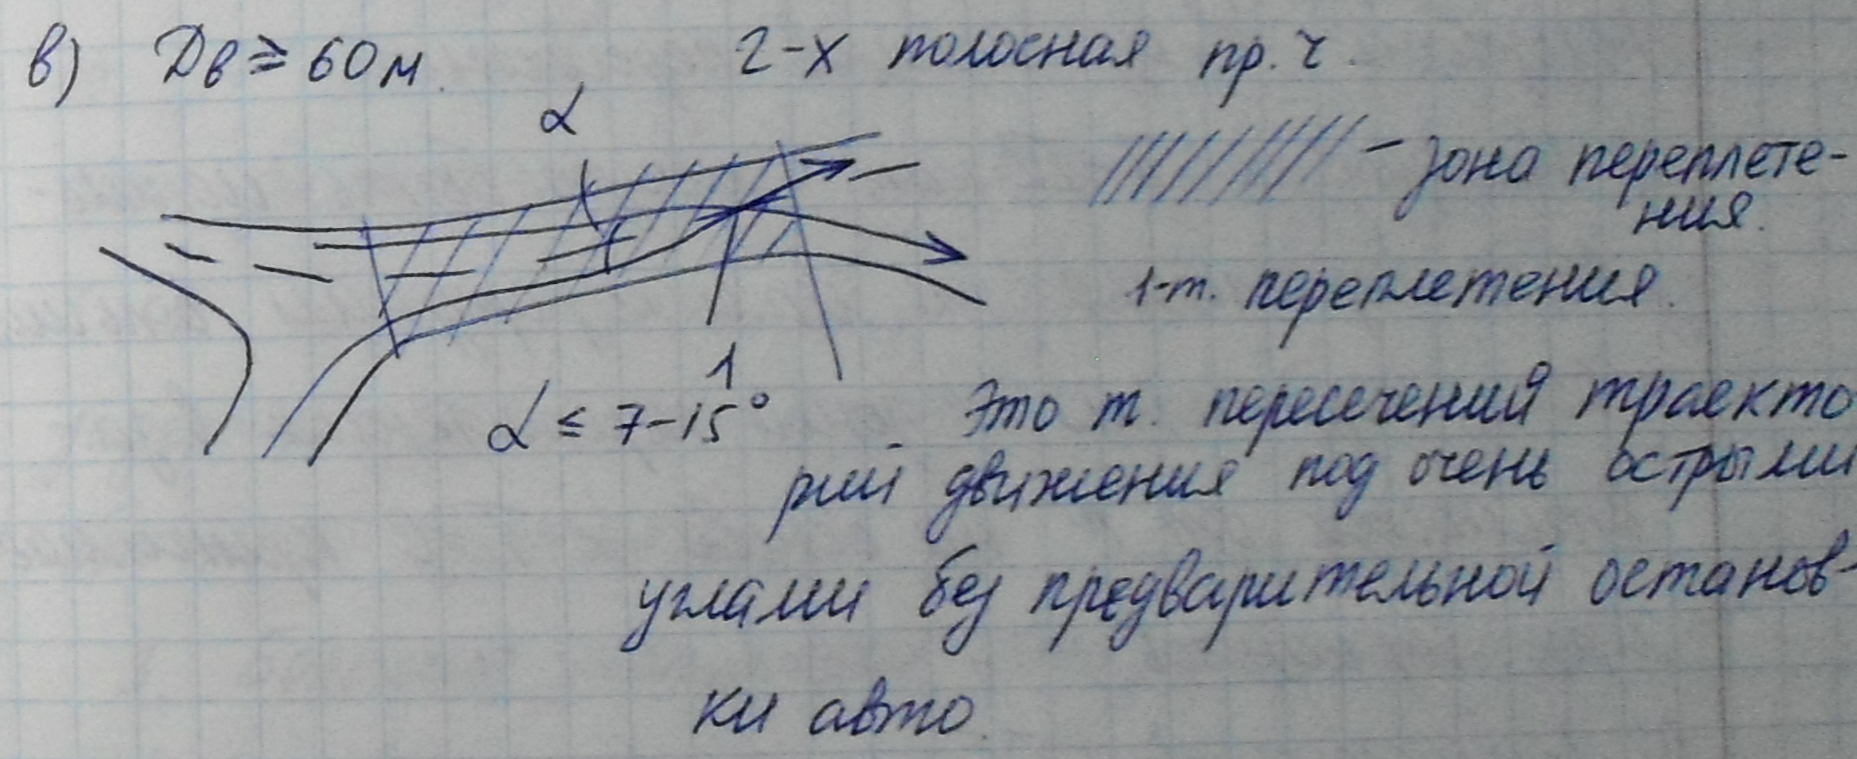 в) Дв ≥ 60 м. 2-х полосная пр. ч.
α
– зона переплете-
ния.
1-т. переплетения.
1
α ≤ 7-15° Это т. пересечений траекто
рий движения под очень острыми
углами без предварительной останов-
ки авто.